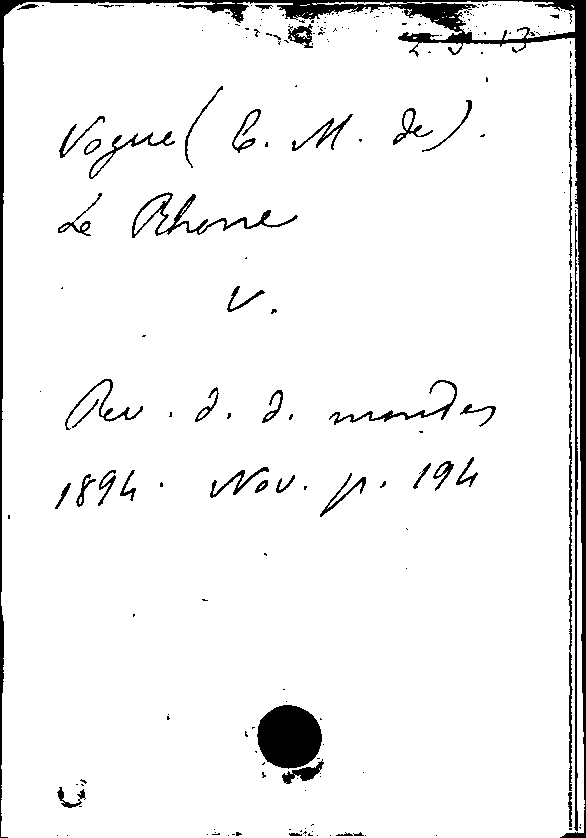 2.5.13
Vogue (E. M. de).
Le Rhone
V.
Rev. d. d. mondes
1894. Nov. p. 194